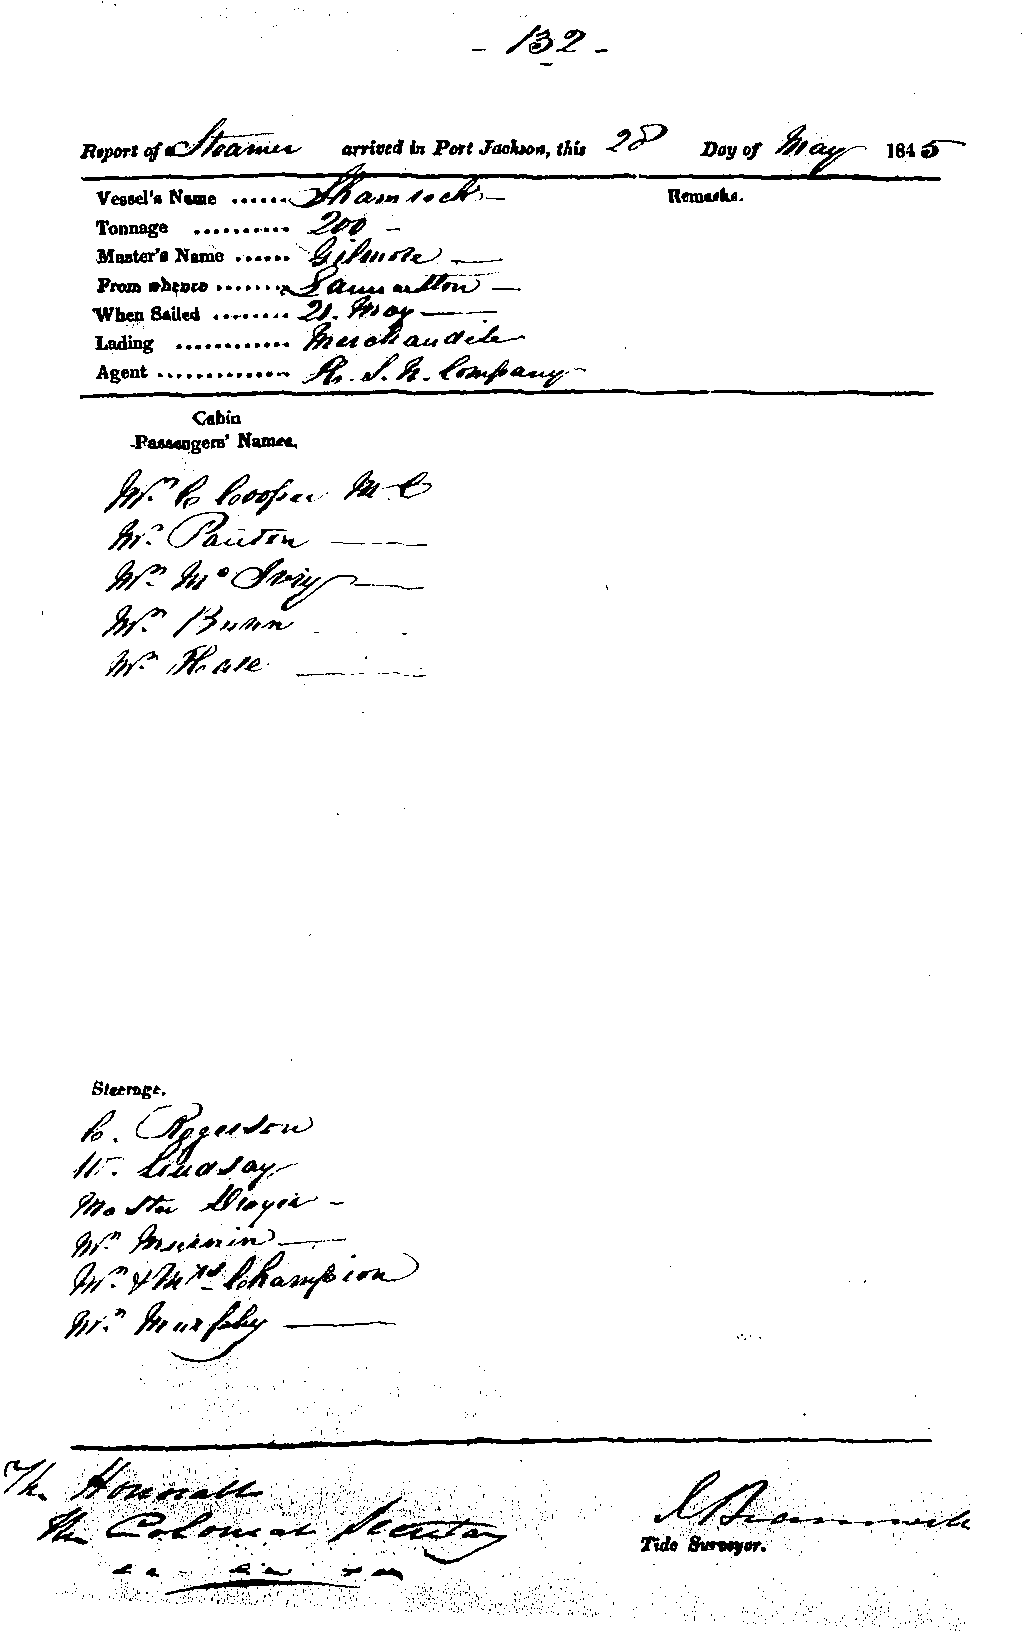 - 132 -
Report of a Steamer arrived in Port Jackson, this 28 Day of May 1845
Vessel's Name ...... Shamrock - Remarks.
Tonnage .......... 200 -
Master's Name ...... Gilmore -
From whence ....... Launceston -
When Sailed ........ 21. May -
Lading ............ Merchandise
Agent ............. H. S. N. Company
Cabin
Passengers' Names.
Mr. C Cooper M C
Mr. Panton
Mr. Mc Ivey
Mr. Bunn
Mr. Hale
Steerage.
C. Rogerson
W. Lindsay
Master -
Mr.
Mr. & Mrs. Champion
Mr. Murphy
The Honorable
The Colonial Secretary
Tide Surveyor.